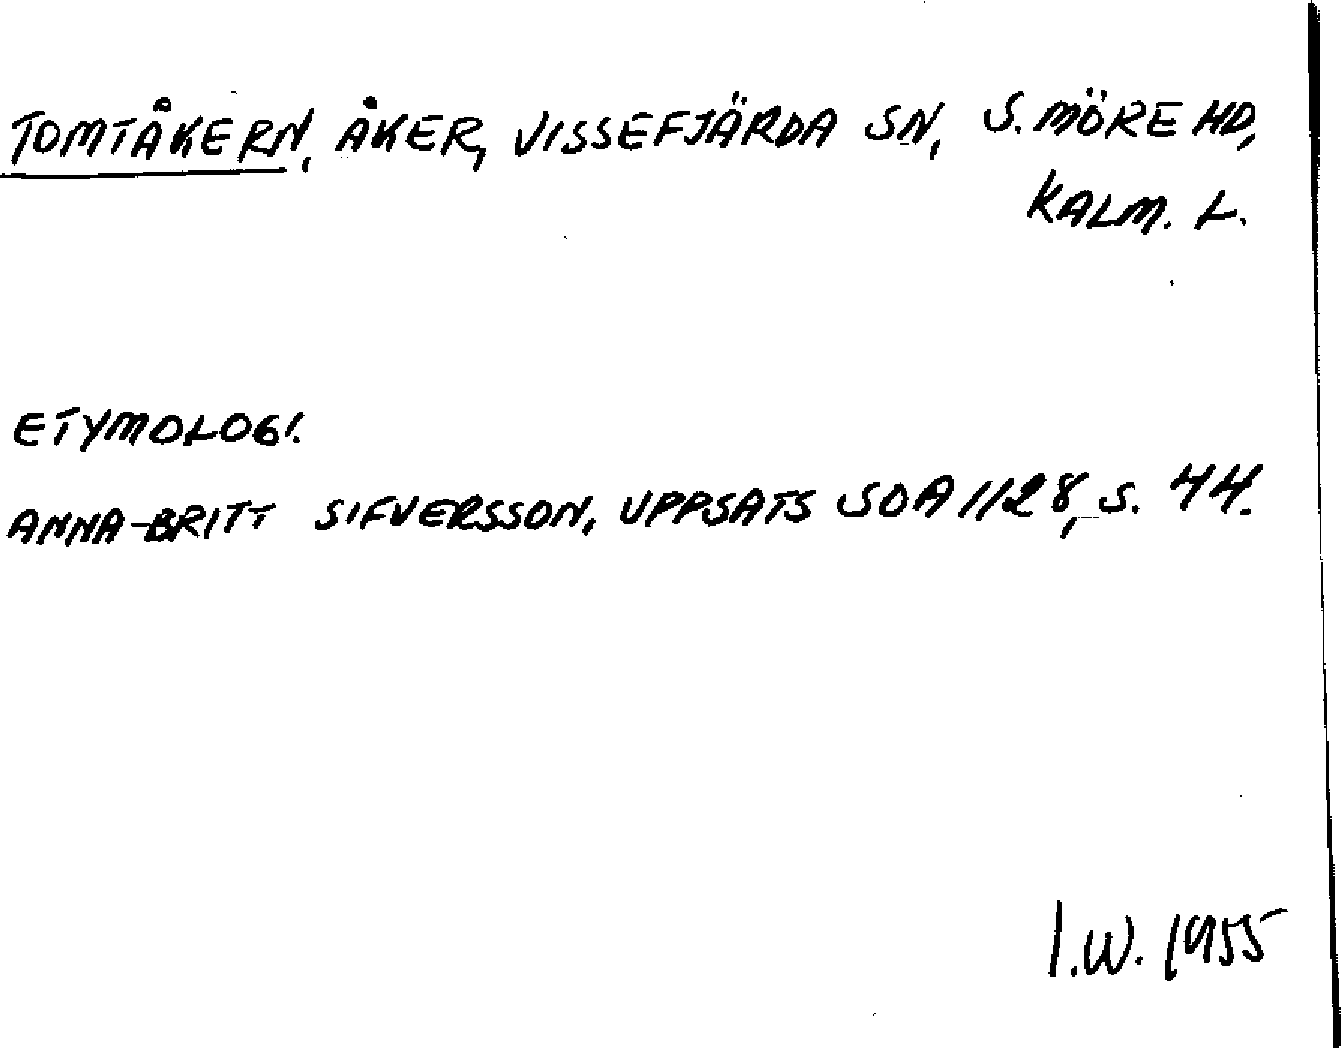 TOMTÅKERN, ÅKER, VISSEFJÄRDA SN, S. MÖRE HD,
KALM. L.
ETYMOLOGI.
ANNA-BRITT SIFVERSSON, UPPSATS SOA 1128, S. 44.
I.W. 1955